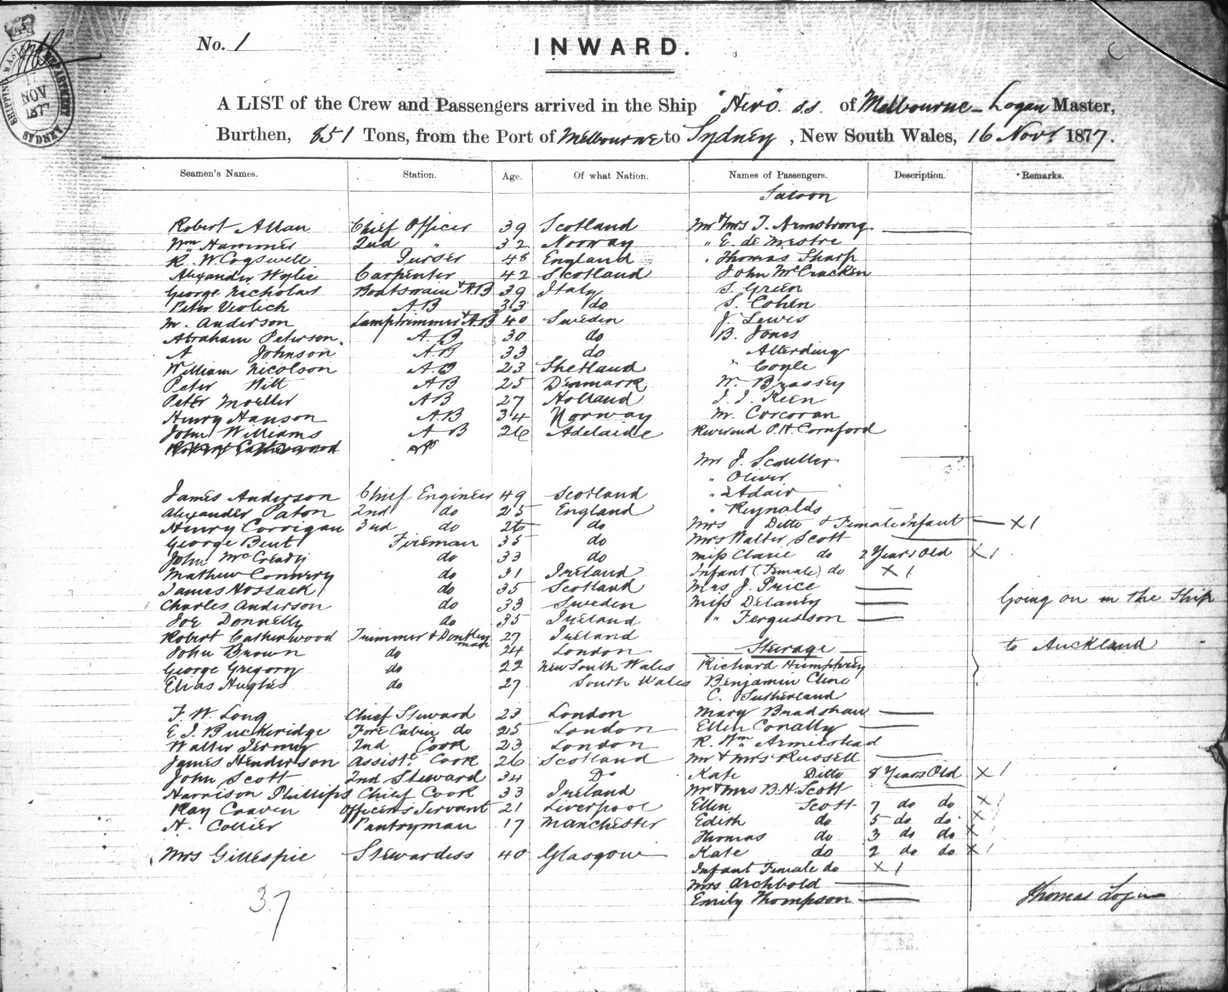 No. 1
INWARD.
SHIPPING
NOV
A LIST of the Crew and Passengers arrived in the Ship "Hero" s.s. of Melbourne - Logan Master,
Burthen, 851 Tons, from the Port of Melbourne to Sydney, New South Wales, 16 Novr. 1877.
Seamen's Names. Station. Age. Of what Nation. Names of Passengers. Description. Remarks.
Saloon
Robert Allan Chief Officer 39 Scotland Mr & Mrs T. Armstrong
Wm Hammer 2nd " 32 Norway " E. de Mestre
R. W Cogswell Purser 48 England " Thomas Sharp
Alexander Wylie Carpenter 42 Scotland John McCracken
George Nicholas Boatswain & AB 39 Italy S. Green
Peter AB 33 do S. Cohen
M. Anderson Lamptrimmer & AB 40 Sweden J. Lewis
Abraham Peterson AB 30 do B. Jones
A Johnson AB 33 do
William Nicolson AB 23 Shetland " Coyle
Peter Witt AB 25 Denmark W. Brassey
Peter Moeller AB 27 Holland J. J. Keen
Henry Hanson AB 34 Norway M. Corcoran
John Williams AB 26 Adelaide Reverend P.H. Cornford
Mr J. Scouller
" Oliver
James Anderson Chief Engineer 49 Scotland " Adair
Alexander Paton 2nd do 25 England " Reynolds
Henry Corrigan 3rd do 26 do Mrs Ditto & Female Infant X1
George Bent Fireman 35 do Mrs Walter Scott
John McCready do 33 do Miss Clarie do 2 Years Old X1
Mathew Connery do 31 Ireland Infant (Female) do X1
James Hossack do 35 Scotland Mrs J. Price
Charles Anderson do 33 Sweden Miss Delaney Going on in the Ship
Joe Donnelly do 35 Ireland " Fergusson
Robert Catherwood Trimmer & Donkeyman 27 Ireland
John Brown do 24 London Steerage to Auckland
George Gregory do 22 New South Wales Richard Humphrey
Elias Hughes do 27 South Wales Benjamin Cline
C. Sutherland
F. W. Long Chief Steward 23 London Mary Bradshaw
E. J. Buckeridge Fore Cabin do 25 London Ellen Conally
Walter Jermy 2nd Cook 23 London R. Wm Armistead
James Henderson Assistt Cook 26 Scotland Mr & Mrs Russell
John Scott 2nd Steward 34 Do Kate Ditto 8 Years Old X1
Harrison Phillips Chief Cook 33 Ireland Mr & Mrs B. H. Scott
Ray Craven Officers Servant 21 Liverpool Ellen Scott 7 do do X1
H. Collier Pantryman 17 Manchester Edith do 5 do do X
Thomas do 3 do do X
Mrs Gillespie Stewardess 40 Glasgow Kate do 2 do do X1
Infant Female do X1
Mrs Archbold
37 Emily Thompson Thomas Logan